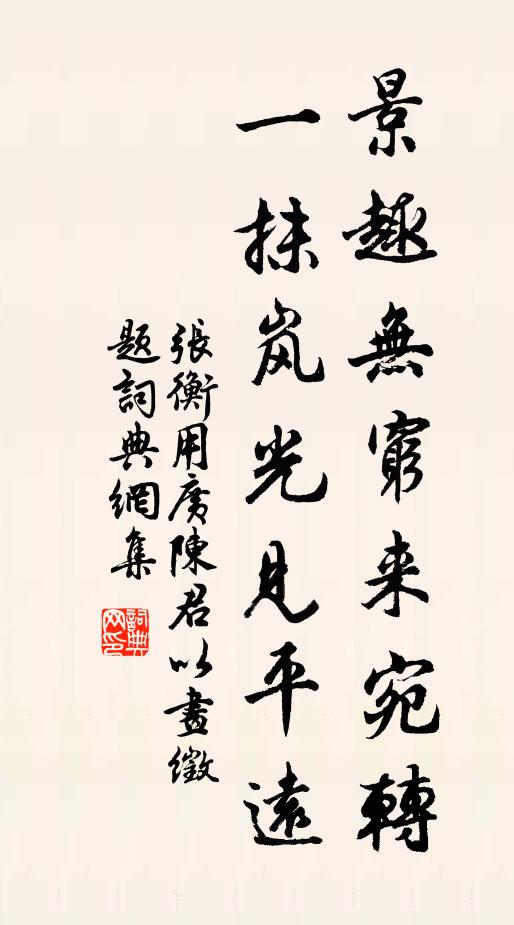 景趣無窮来宛轉
一抹岚光見平遠
張衡用廣陳君以畫徵
题詞典網集
詞典网印